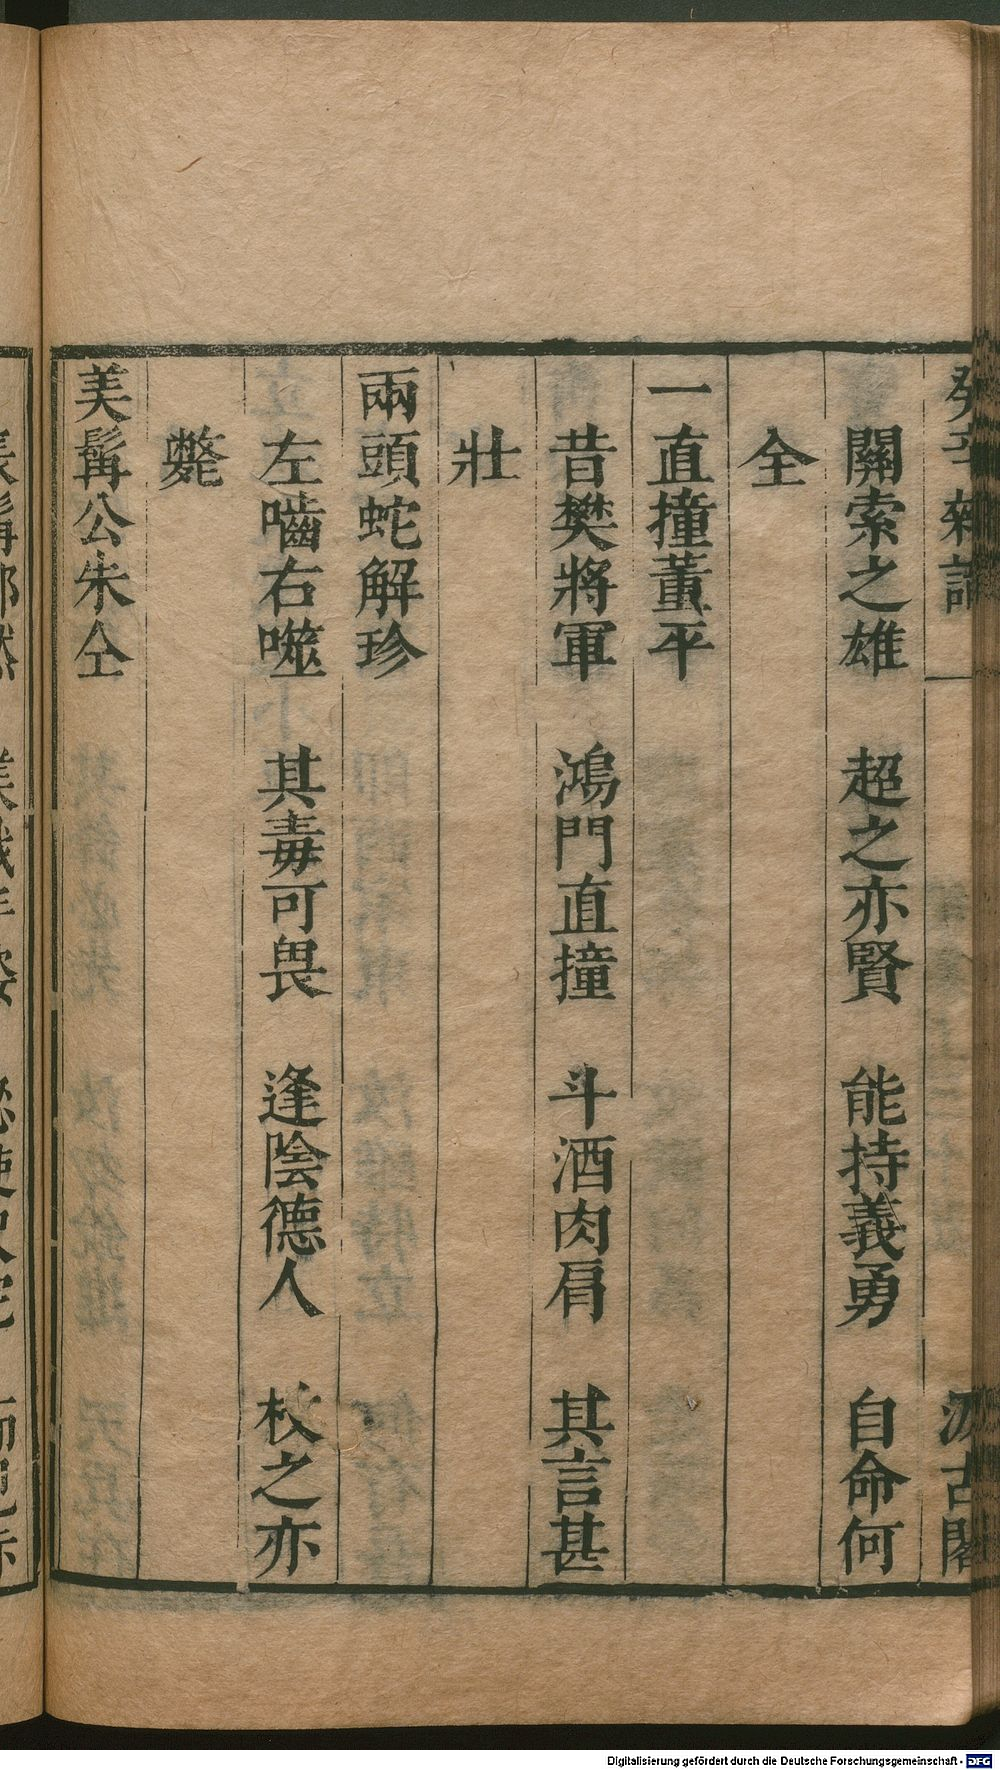 癸辛雜識 汲古閣
關索之雄 超之亦賢 能持義勇 自命何
全
一直撞董平
昔樊將軍 鴻門直撞 斗酒肉肩 其言甚
壯
兩頭蛇解珍
左嚙右噬 其毒可畏 逢陰德人 杖之亦
斃
美髯公朱仝
Digitalisierung gefördert durch die Deutsche Forschungsgemeinschaft - DFG